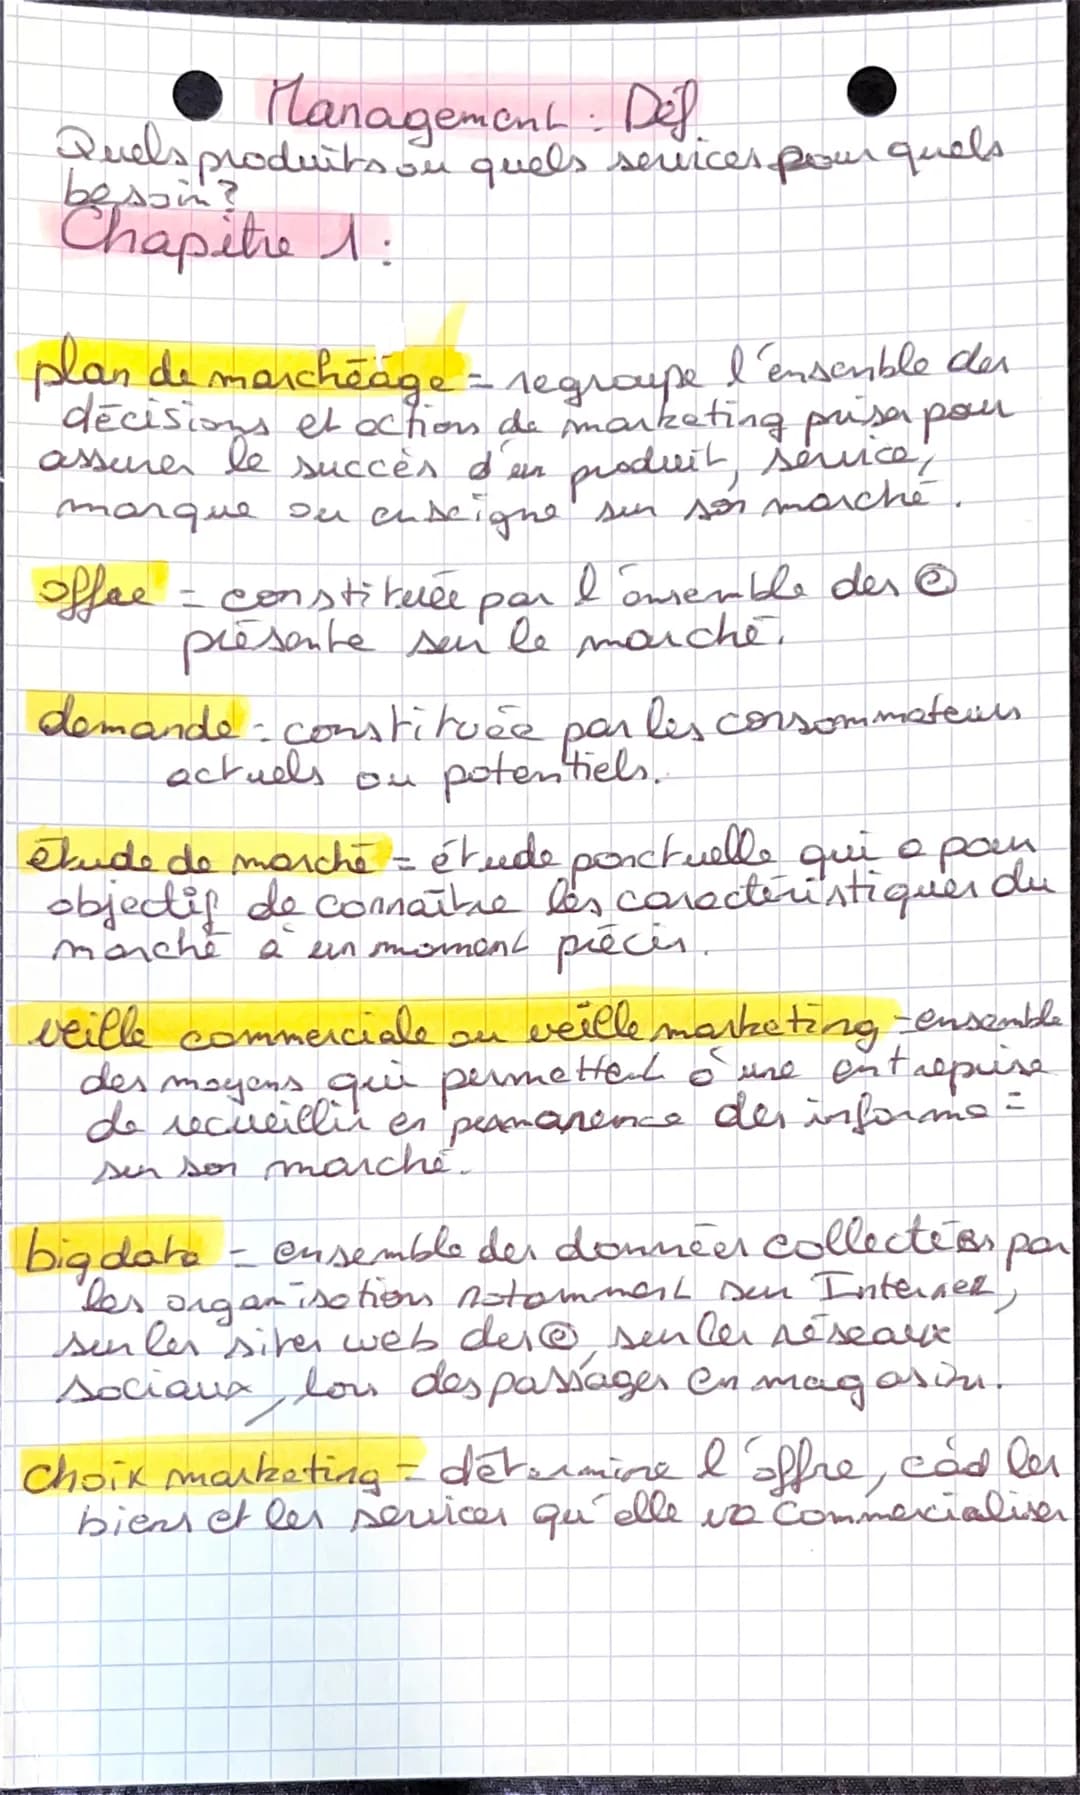 Management : Déf.
Quels produits ou quels services pour quels
besoin?
Chapitre 1 :
plan de marchéage = regroupe l'ensemble des
décisions et action de marketing prises pour
assurer le succès d'un produit, service,
marque ou enseigne sur son marché.
offre = constituée par l'ensemble des ⓔ
présente sur le marché.
demande = constituée par les consommateurs
actuels ou potentiels.
étude de marché = étude ponctuelle qui a pour
objectif de connaître les caractéristiques du
marché à un moment précis.
veille commerciale ou veille marketing = ensemble
des moyens qui permettent à une entreprise
de recueillir en permanence des informa =
sur son marché.
big data = ensemble des données collectées par
les organisations notamment sur Internet,
sur les sites web des ⓔ, sur les réseaux
sociaux, lors des passages en magasin.
choix marketing = détermine l'offre, càd les
biens et les services qu'elle va commercialiser